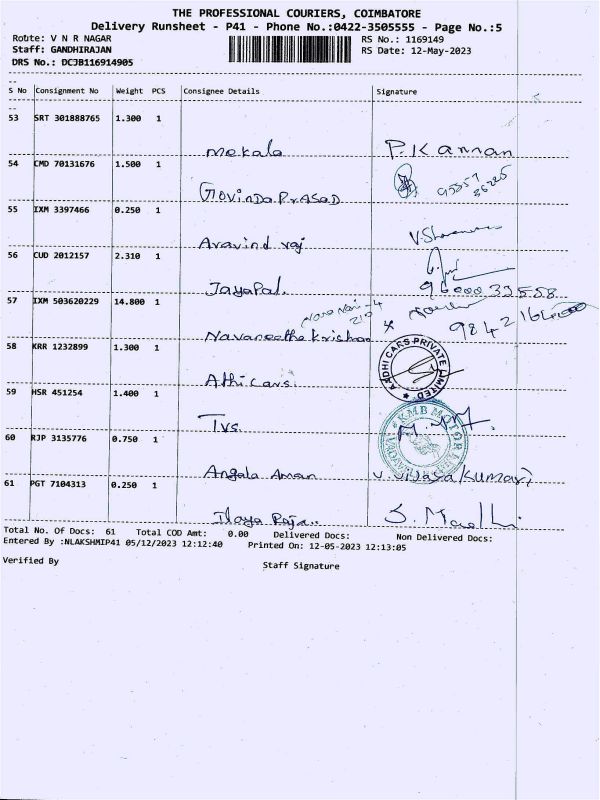 THE PROFESSIONAL COURIERS, COIMBATORE
Delivery Runsheet - P41 - Phone No.:0422-3505555 - Page No.:5
Route: V N R NAGAR
RS No.: 1169149
Staff: GANDHIRAJAN
RS Date: 12-May-2023
DRS No.: DCJB116914905
S No Consignment No Weight PCS Consignee Details Signature
53 SRT 301888765 1.300 1
Mekala P.Kannan
54 CMD 70131676 1.500 1
Govinda Prasad
55 IXM 3397466 0.250 1
Aravind raj
56 CUD 2012157 2.310 1
Jayapal. 96000 33558
57 IXM 503620229 14.800 1
Navaneetha Krishnan
58 KRR 1232899 1.300 1
AADHI CARS PRIVATE LIMITED
Athi cars.
59 HSR 451254 1.400 1
KMB MOTOR
Tvs.
60 RJP 3135776 0.750 1
Angala Aman
61 PGT 7104313 0.250 1
Ilaya Raja..
Total No. Of Docs: 61 Total COD Amt: 0.00 Delivered Docs: Non Delivered Docs:
Entered By :NLAKSHMIP41 05/12/2023 12:12:40 Printed On: 12-05-2023 12:13:05
Verified By
Staff Signature